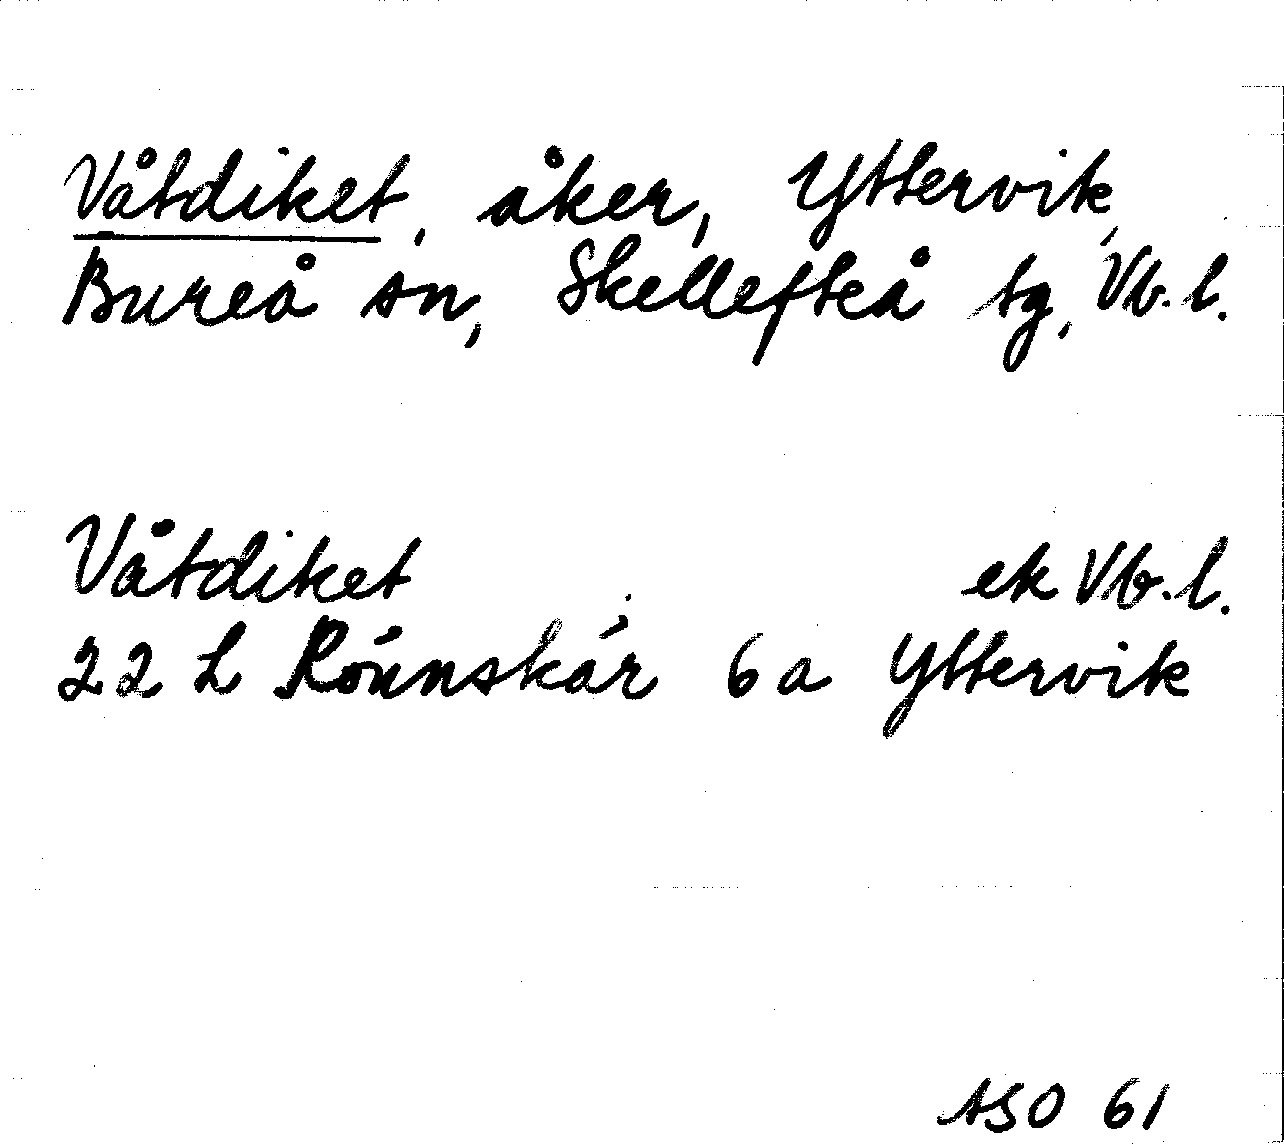 Våtdiket, åker, Yttervik,
Bureå sn, Skellefteå tg, Vb. l.
Våtdiket ek Vb. l.
22 L Rönnskär 6 a Yttervik
ASO 61